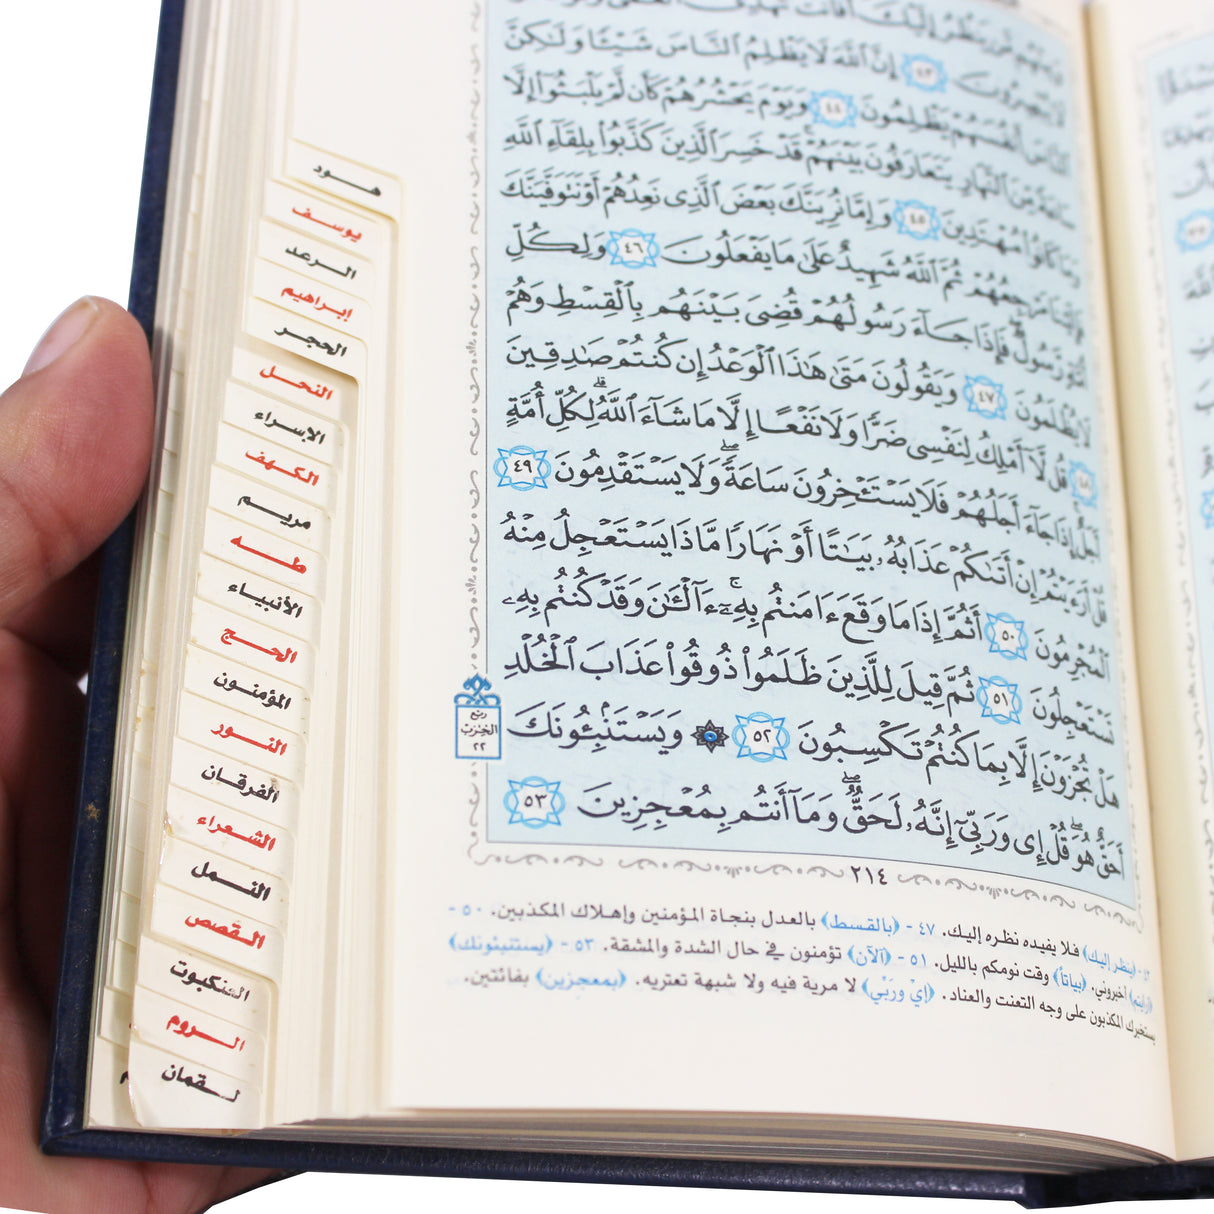 إِنَّ ٱللَّهَ لَا يَظْلِمُ ٱلنَّاسَ شَيْـًٔا وَلَٰكِنَّ
ٱلنَّاسَ أَنفُسَهُمْ يَظْلِمُونَ ٤٤ وَيَوْمَ يَحْشُرُهُمْ كَأَن لَّمْ يَلْبَثُوٓا۟ إِلَّا
سَاعَةً مِّنَ ٱلنَّهَارِ يَتَعَارَفُونَ بَيْنَهُمْ ۚ قَدْ خَسِرَ ٱلَّذِينَ كَذَّبُوا۟ بِلِقَآءِ ٱللَّهِ
وَمَا كَانُوا۟ مُهْتَدِينَ ٤٥ وَإِمَّا نُرِيَنَّكَ بَعْضَ ٱلَّذِى نَعِدُهُمْ أَوْ نَتَوَفَّيَنَّكَ
فَإِلَيْنَا مَرْجِعُهُمْ ثُمَّ ٱللَّهُ شَهِيدٌ عَلَىٰ مَا يَفْعَلُونَ ٤٦ وَلِكُلِّ
أُمَّةٍ رَّسُولٌ ۖ فَإِذَا جَآءَ رَسُولُهُمْ قُضِىَ بَيْنَهُم بِٱلْقِسْطِ وَهُمْ
لَا يُظْلَمُونَ ٤٧ وَيَقُولُونَ مَتَىٰ هَٰذَا ٱلْوَعْدُ إِن كُنتُمْ صَٰدِقِينَ
٤٨ قُل لَّآ أَمْلِكُ لِنَفْسِى ضَرًّا وَلَا نَفْعًا إِلَّا مَا شَآءَ ٱللَّهُ ۗ لِكُلِّ أُمَّةٍ
أَجَلٌ ۚ إِذَا جَآءَ أَجَلُهُمْ فَلَا يَسْتَـْٔخِرُونَ سَاعَةً ۖ وَلَا يَسْتَقْدِمُونَ ٤٩
قُلْ أَرَءَيْتُمْ إِنْ أَتَىٰكُمْ عَذَابُهُۥ بَيَٰتًا أَوْ نَهَارًا مَّاذَا يَسْتَعْجِلُ مِنْهُ
ٱلْمُجْرِمُونَ ٥٠ أَثُمَّ إِذَا مَا وَقَعَ ءَامَنتُم بِهِۦٓ ۚ ءَآلْـَٰٔنَ وَقَدْ كُنتُم بِهِۦ
تَسْتَعْجِلُونَ ٥١ ثُمَّ قِيلَ لِلَّذِينَ ظَلَمُوا۟ ذُوقُوا۟ عَذَابَ ٱلْخُلْدِ
هَلْ تُجْزَوْنَ إِلَّا بِمَا كُنتُمْ تَكْسِبُونَ ٥٢ ۞ وَيَسْتَنۢبِـُٔونَكَ
أَحَقٌّ هُوَ ۖ قُلْ إِى وَرَبِّىٓ إِنَّهُۥ لَحَقٌّ ۖ وَمَآ أَنتُم بِمُعْجِزِينَ ٥٣
ربع
الحزب
٢٢
٢١٤
﴿ينظر إليك﴾ فلا يفيده نظره إليك. ٤٧ - ﴿بالقسط﴾ بالعدل بنجاة المؤمنين وإهلاك المكذبين. ٥٠ -
﴿أرأيتم﴾ أخبروني. ﴿بياتاً﴾ وقت نومكم بالليل. ٥١ - ﴿آلآن﴾ تؤمنون في حال الشدة والمشقة. ٥٣ - ﴿يستنبئونك﴾
يستخبرك المكذبون على وجه التعنت والعناد. ﴿إي وربي﴾ لا مرية فيه ولا شبهة تعتريه. ﴿بمعجزين﴾ بفائتين.
هود
يوسف
الرعد
إبراهيم
الحجر
النحل
الاسراء
الكهف
مريم
طه
الأنبياء
الحج
المؤمنون
النور
الفرقان
الشعراء
النمل
القصص
العنكبوت
الروم
لقمان